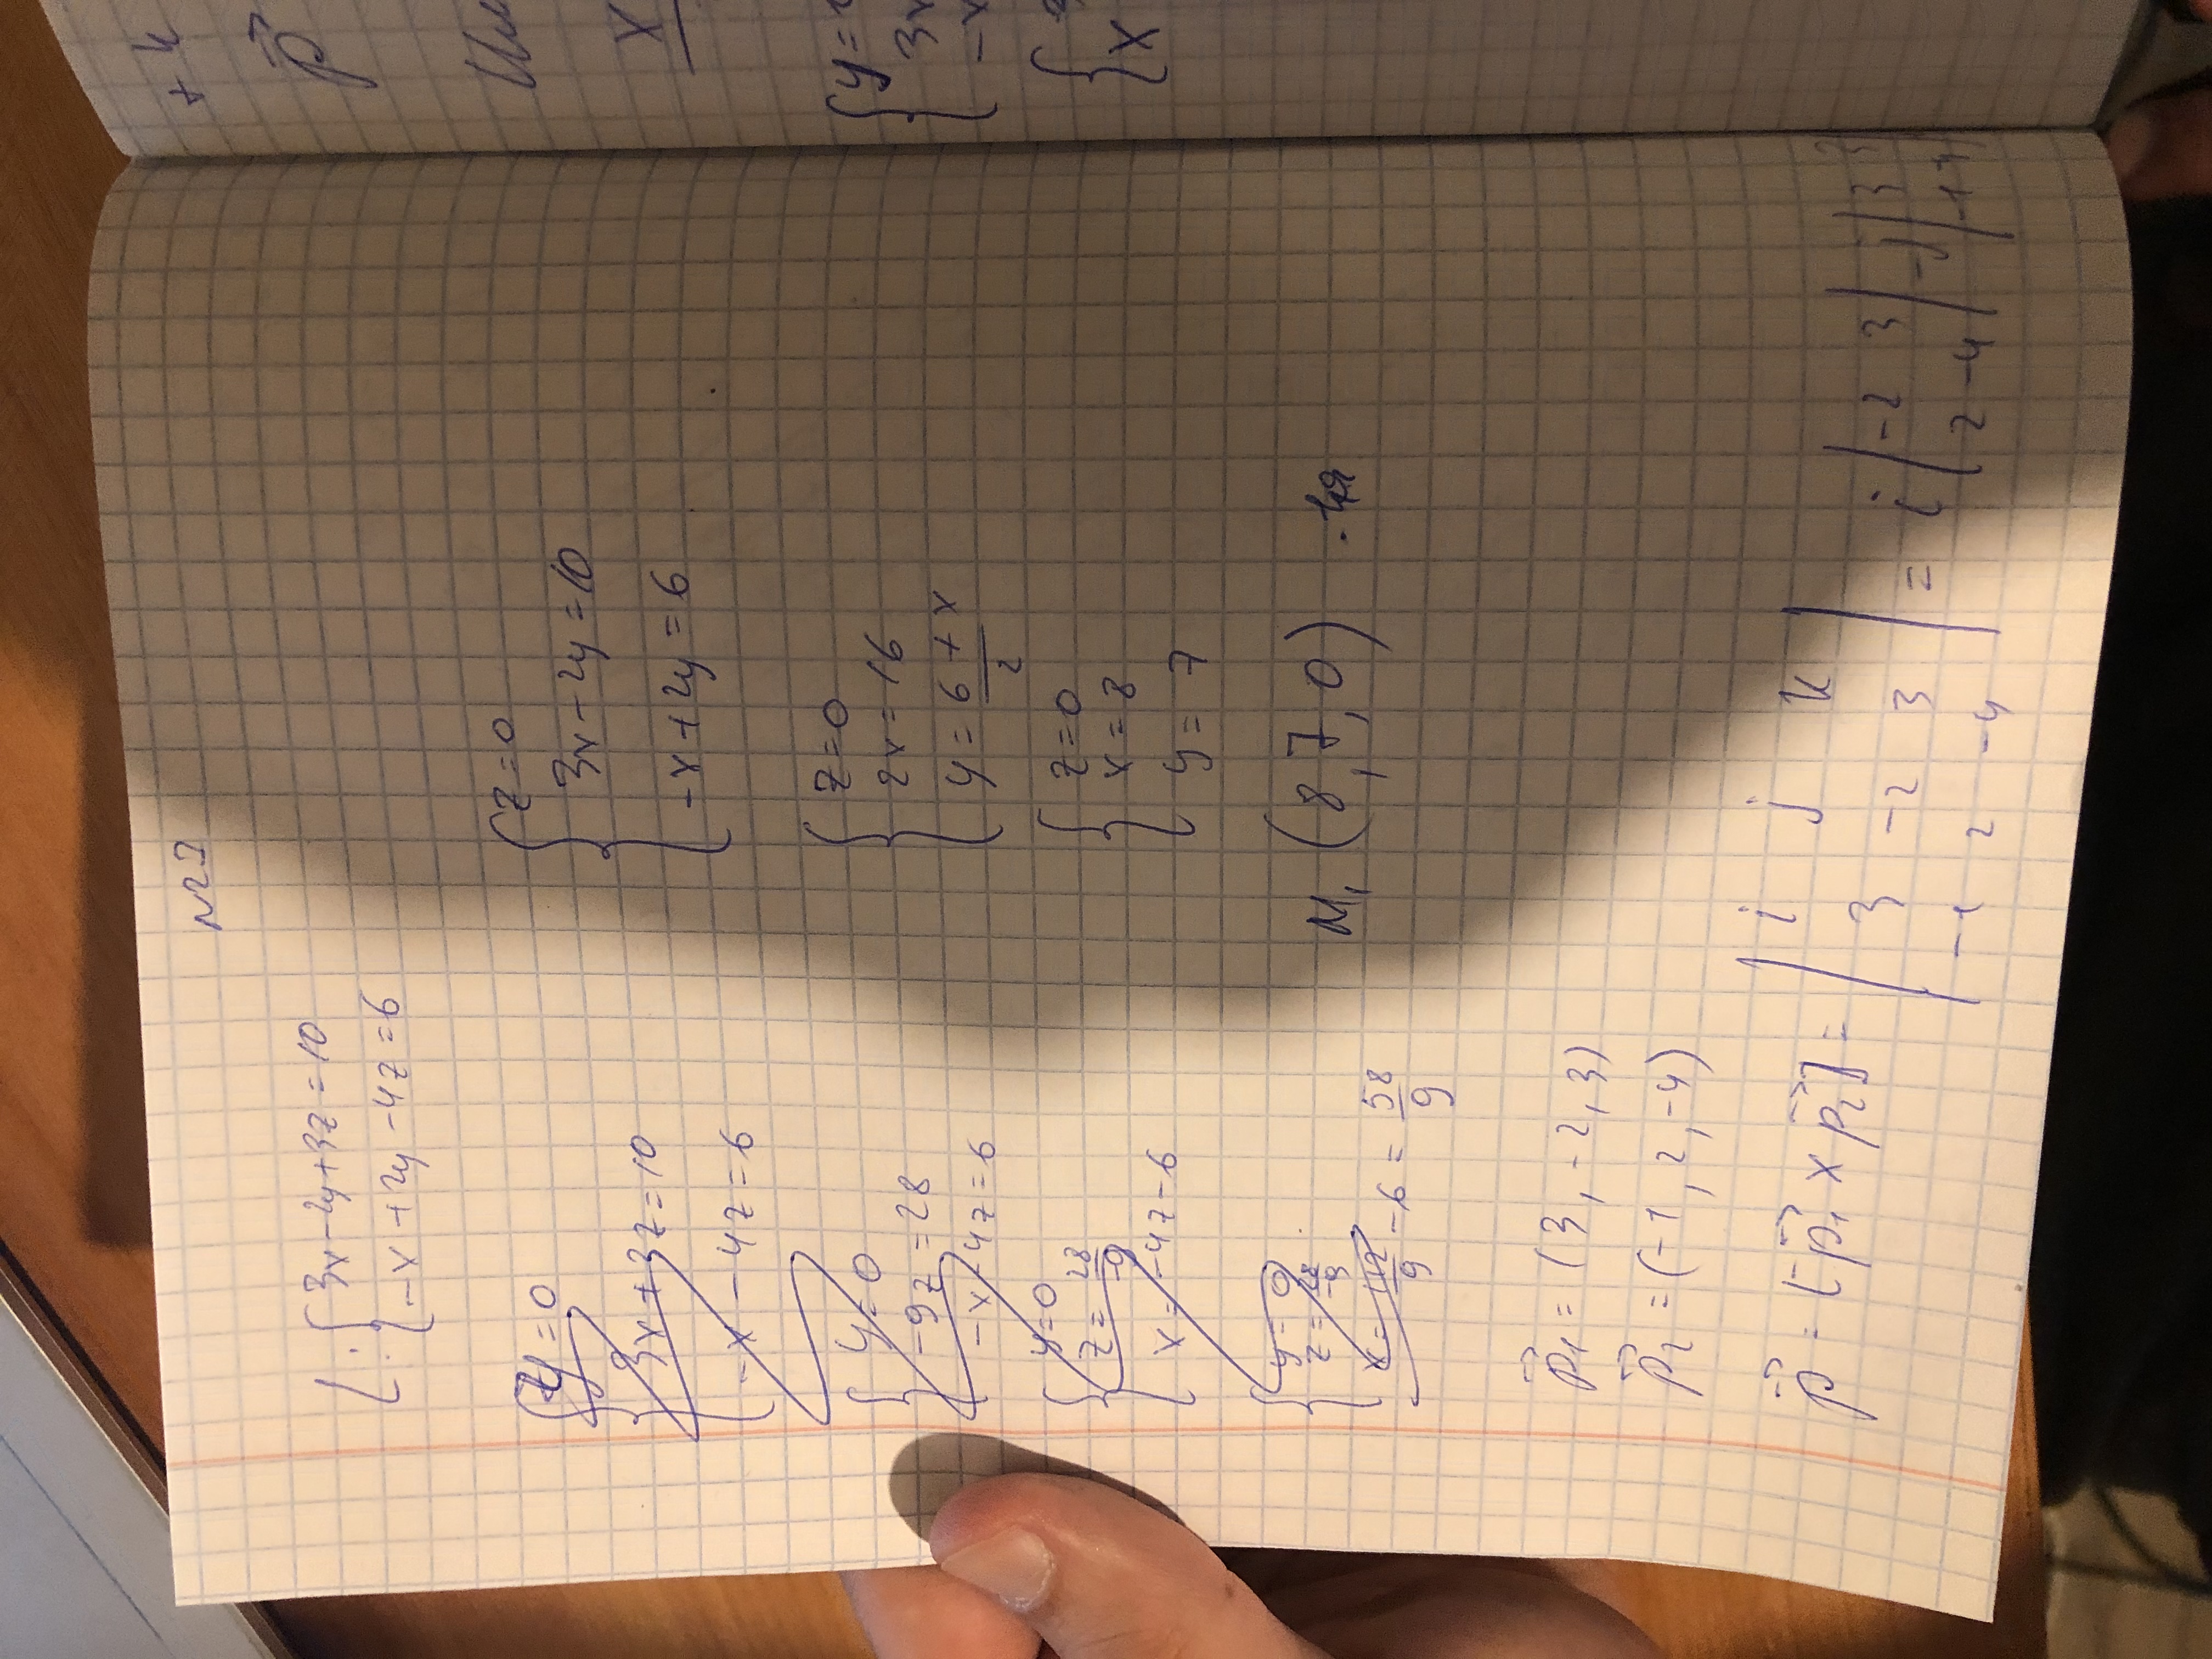 N22
L: { 3x-2y+3z=10
-x+2y-4z=6
y=0
3x+3z=10
-x-4z=6
{ y=0
-9z=28
-x-4z=6
{ y=0
z=28/-9
x=-4z-6
{ y=0
z=28/-9
x=112/9-6=58/9
{ z=0
3x-2y=10
-x+2y=6
{ z=0
2x=16
y=6+x/2
{ z=0
x=8
y=7
M₁(8,7,0)
p⃗₁=(3,-2,3)
p⃗₂=(-1,2,-4)
p⃗=[p⃗₁×p⃗₂]= | i j k |
| 3 -2 3 | = i | -2 3 | -j | 3 3
| -1 2 -4 | | 2 -4 | | -1 -4 |
+k
p⃗
x
{ y=
3x
-x
{
x